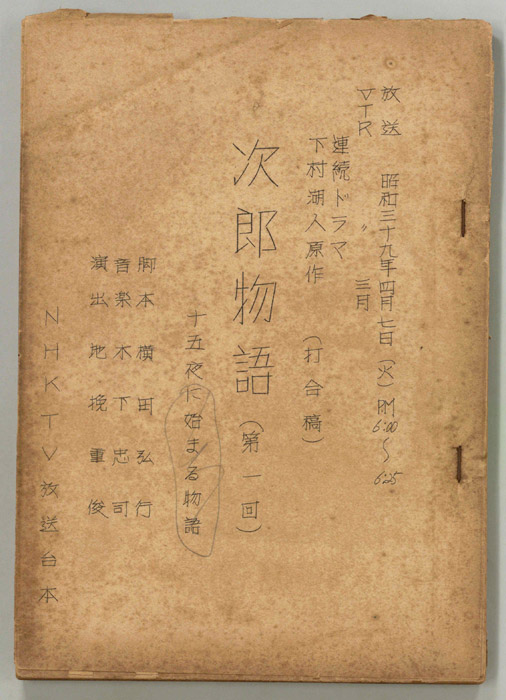 放送 昭和三十九年四月七日(火)PM 6:00〜6:25
VTR 〃 三月
連続ドラマ
下村湖人原作 (打合稿)
次郎物語(第一回)
十五夜に始まる物語
脚本 横田弘行
音楽 木下忠司
演出 地挽重俊
NHKTV放送台本